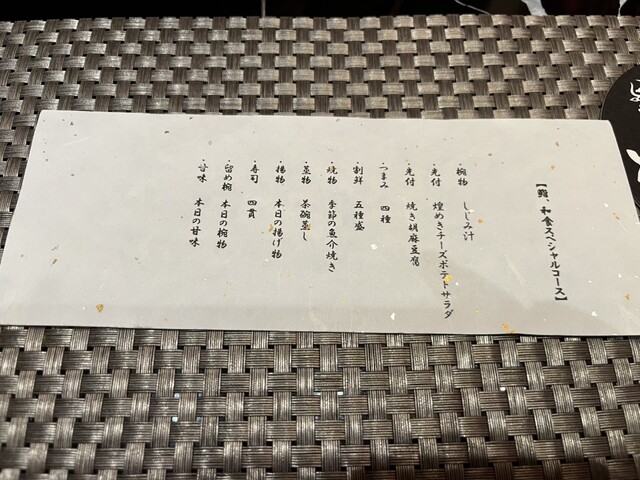 【鮨、和食スペシャルコース】
・椀物 しじみ汁
・先付 煌めきチーズポテトサラダ
・先付 焼き胡麻豆腐
・つまみ 四種
・割鮮 五種盛
・焼物 季節の魚介焼き
・蒸物 茶碗蒸し
・揚物 本日の揚げ物
・寿司 四貫
・留め椀 本日の椀物
・甘味 本日の甘味